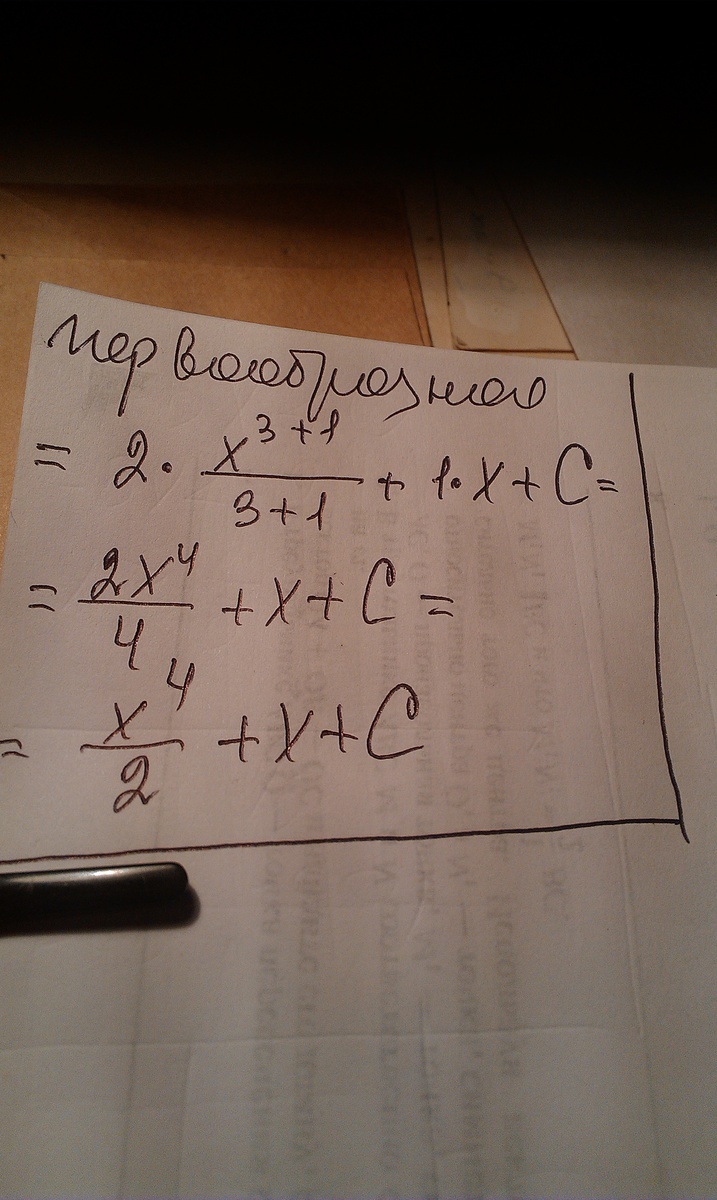 первообразная
= 2 · x^(3+1)/(3+1) + 1·x + C =
= 2x^4/4 + x + C =
= x^4/2 + x + C